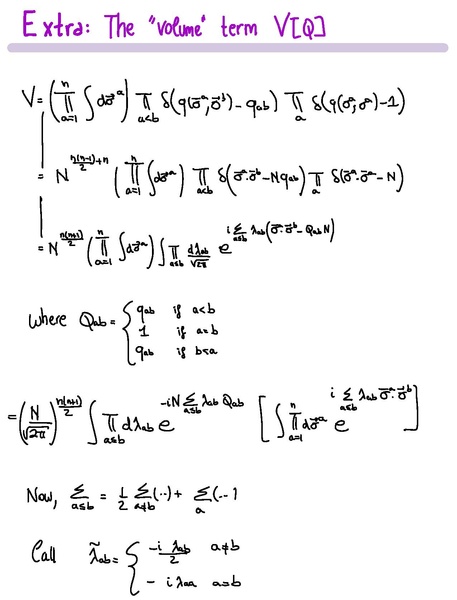 Extra: The "volume" term V[Q]
V = (∏_{a=1}^{n} ∫ dσ⃗^a) ∏_{a<b} δ(q(σ⃗^a, σ⃗^b) - q_{ab}) ∏_a δ(q(σ^a, σ^a) - 1)
= N^{n(n-1)/2 + n} (∏_{a=1}^{n} ∫ dσ⃗^a) ∏_{a<b} δ(σ⃗^a · σ⃗^b - N q_{ab}) ∏_a δ(σ⃗^a · σ⃗^a - N)
= N^{n(n+1)/2} (∏_{a=1}^{n} ∫ dσ⃗^a) ∫ ∏_{a≤b} dλ_{ab}/√2π e^{i Σ_{a≤b} λ_{ab} (σ⃗^a · σ⃗^b - Q_{ab} N)}
where Q_{ab} = { q_{ab} if a<b
1 if a=b
q_{ab} if b<a
= (N/√2π)^{n(n+1)/2} ∫ ∏_{a≤b} dλ_{ab} e^{-iN Σ_{a≤b} λ_{ab} Q_{ab}} [∫ ∏_{a=1}^{n} dσ⃗^a e^{i Σ_{a≤b} λ_{ab} σ⃗^a · σ⃗^b}]
Now, Σ_{a≤b} = 1/2 Σ_{a≠b} (··) + Σ_a (...)
Call λ̃_{ab} = { -i λ_{ab}/2 a≠b
- i λ_{aa} a=b